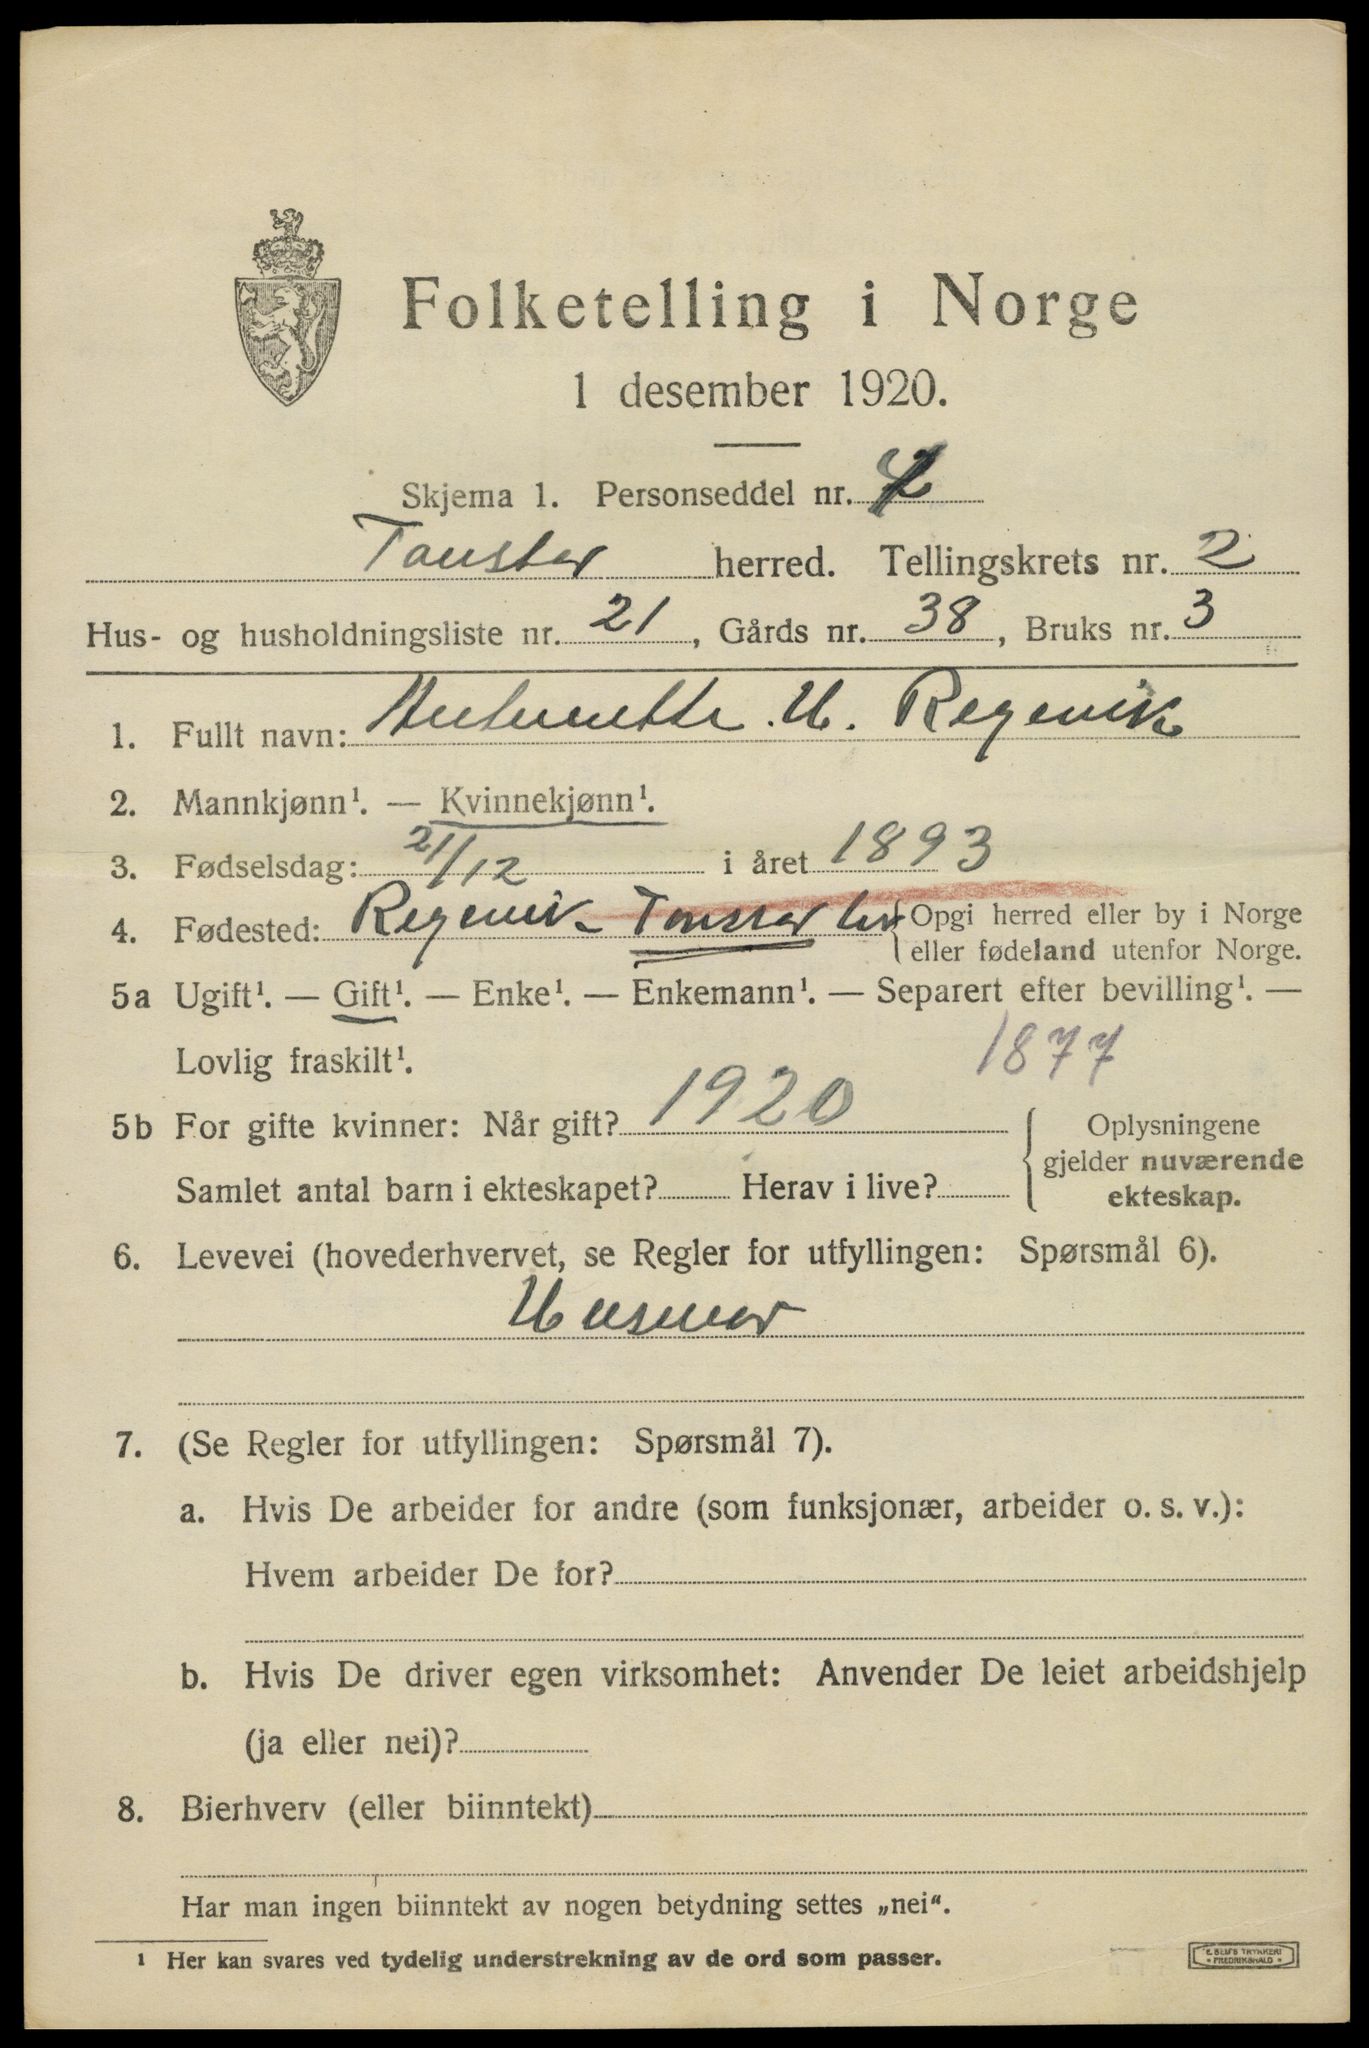 Folketelling i Norge
1 desember 1920.
Skjema 1. Personseddel nr. 2
Tonstad herred. Tellingskrets nr. 2
Hus- og husholdningsliste nr. 21, Gårds nr. 38, Bruks nr. 3
1. Fullt navn: U. Regevik
2. Mannkjønn¹. — Kvinnekjønn¹.
3. Fødselsdag: 21/12 i året 1893
4. Fødested: Regevik Tonstad
Opgi herred eller by i Norge
eller fødeland utenfor Norge.
5a Ugift¹. — Gift¹. — Enke¹. — Enkemann¹. — Separert efter bevilling¹. —
Lovlig fraskilt¹.
1877
5b For gifte kvinner: Når gift? 1920
Samlet antal barn i ekteskapet? Herav i live?
Oplysningene
gjelder nuværende
ekteskap.
6. Levevei (hovederhvervet, se Regler for utfyllingen: Spørsmål 6).
Husmor
7. (Se Regler for utfyllingen: Spørsmål 7).
a. Hvis De arbeider for andre (som funksjonær, arbeider o. s. v.):
Hvem arbeider De for?
b. Hvis De driver egen virksomhet: Anvender De leiet arbeidshjelp
(ja eller nei)?
8. Bierhverv (eller biinntekt)
Har man ingen biinntekt av nogen betydning settes „nei“.
¹ Her kan svares ved tydelig understrekning av de ord som passer.
E. SEM'S TRYKKERI
FREDRIKSHALD